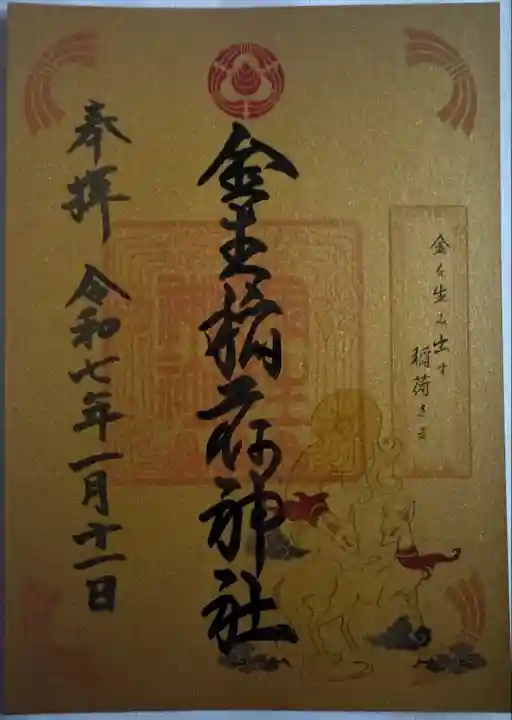 金を生み出す
稲荷さま
金生稲荷神社
奉拝 令和七年一月十一日